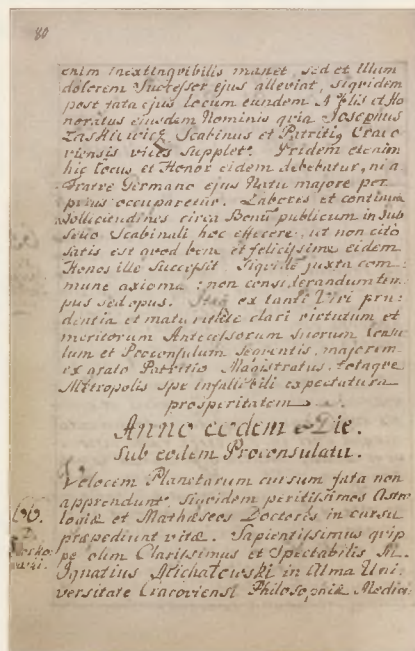 80
enim inextinqvibilis manet, sed et illum
dolorem Successor ejus alleviat, siqvidem
post fata ejus locum eundem Nobilis et Ho
noratus ejusdem Nominis qvia Josephus
Zaskiewicz, Scabinus et Patritiq Craco
viensis vices supplet. Pridem etenim
hic locus et Honor eidem debebatur, ni a
Fratre Germano ejus Natu majore per
prius occuparetur. Labores et continua
sollicitudines circa Bonū publicum in Sub
sellio Scabinali hoc effecere, ut non cito
satis est qvod bene et felicissime eidem
Honos ille Successit. Siqvidē juxta com:
mune axioma: non considerandum tem
pus sed opus. Itaq ex tanti Viri pru
dentia et maturitate clari virtutum et
meritorum Antecessorum suorum Consu
lum et Proconsulum Seqventis, majorem
ex grato Patritio Magistratus, totaque
Metropolis spe infallibili expectatura
prosperitatem
Anno eodem Die.
Sub eodem Proconsulatu.
Velocem Planetarum cursum fata non
apprendunt, siqvidem peritissimos Astro
logiæ et Mathæseos Doctores in cursu
præpediunt vitæ. Sapientissimus qvip
pe olim Clarissimus et Spectabilis M.
Ignatius Michałowski in Alma Uni:
versitate Cracoviensi Philosophiæ Medici